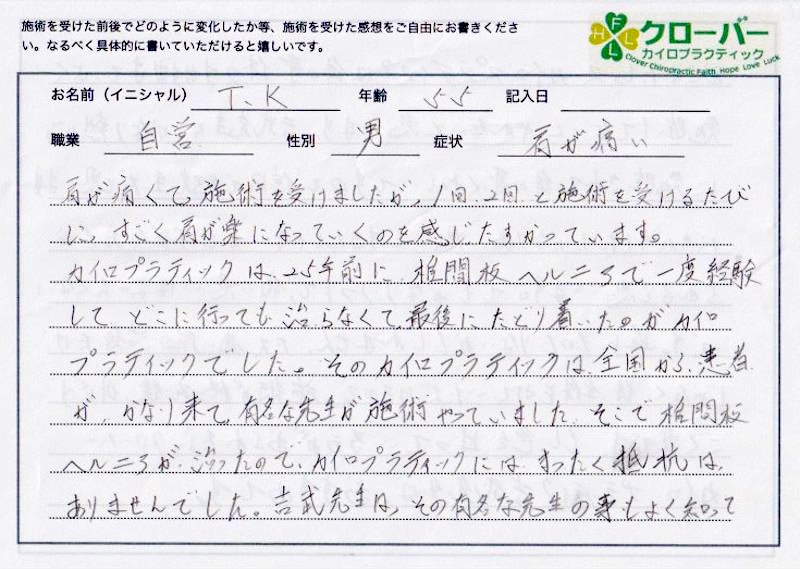 施術を受けた前後でどのように変化したか等、施術を受けた感想をご自由にお書きくださ
い。なるべく具体的に書いていただけると嬉しいです。
FHLL
クローバー
カイロプラクティック
Clover Chiropractic Faith Hope Love Luck
お名前(イニシャル) T.K 年齢 55 記入日
職業 自営 性別 男 症状 肩が痛い
肩が痛くて、施術を受けましたが、1回、2回、と施術を受けるたび
に、すごく肩が楽になっていくのを感じたすかっています。
カイロプラティックは、25年前に、椎間板ヘルニアで一度経験
して、どこに行っても、治らなくて、最後にたどり着いたのがカイロ
プラティックでした。そのカイロプラティックは、全国から、患者
が、かなり来て、有名な先生が施術やっていました。そこで椎間板
ヘルニアが、治ったので、カイロプラティックには、まったく抵抗は、
ありませんでした。吉武先生は、その有名な先生の事もよく知って